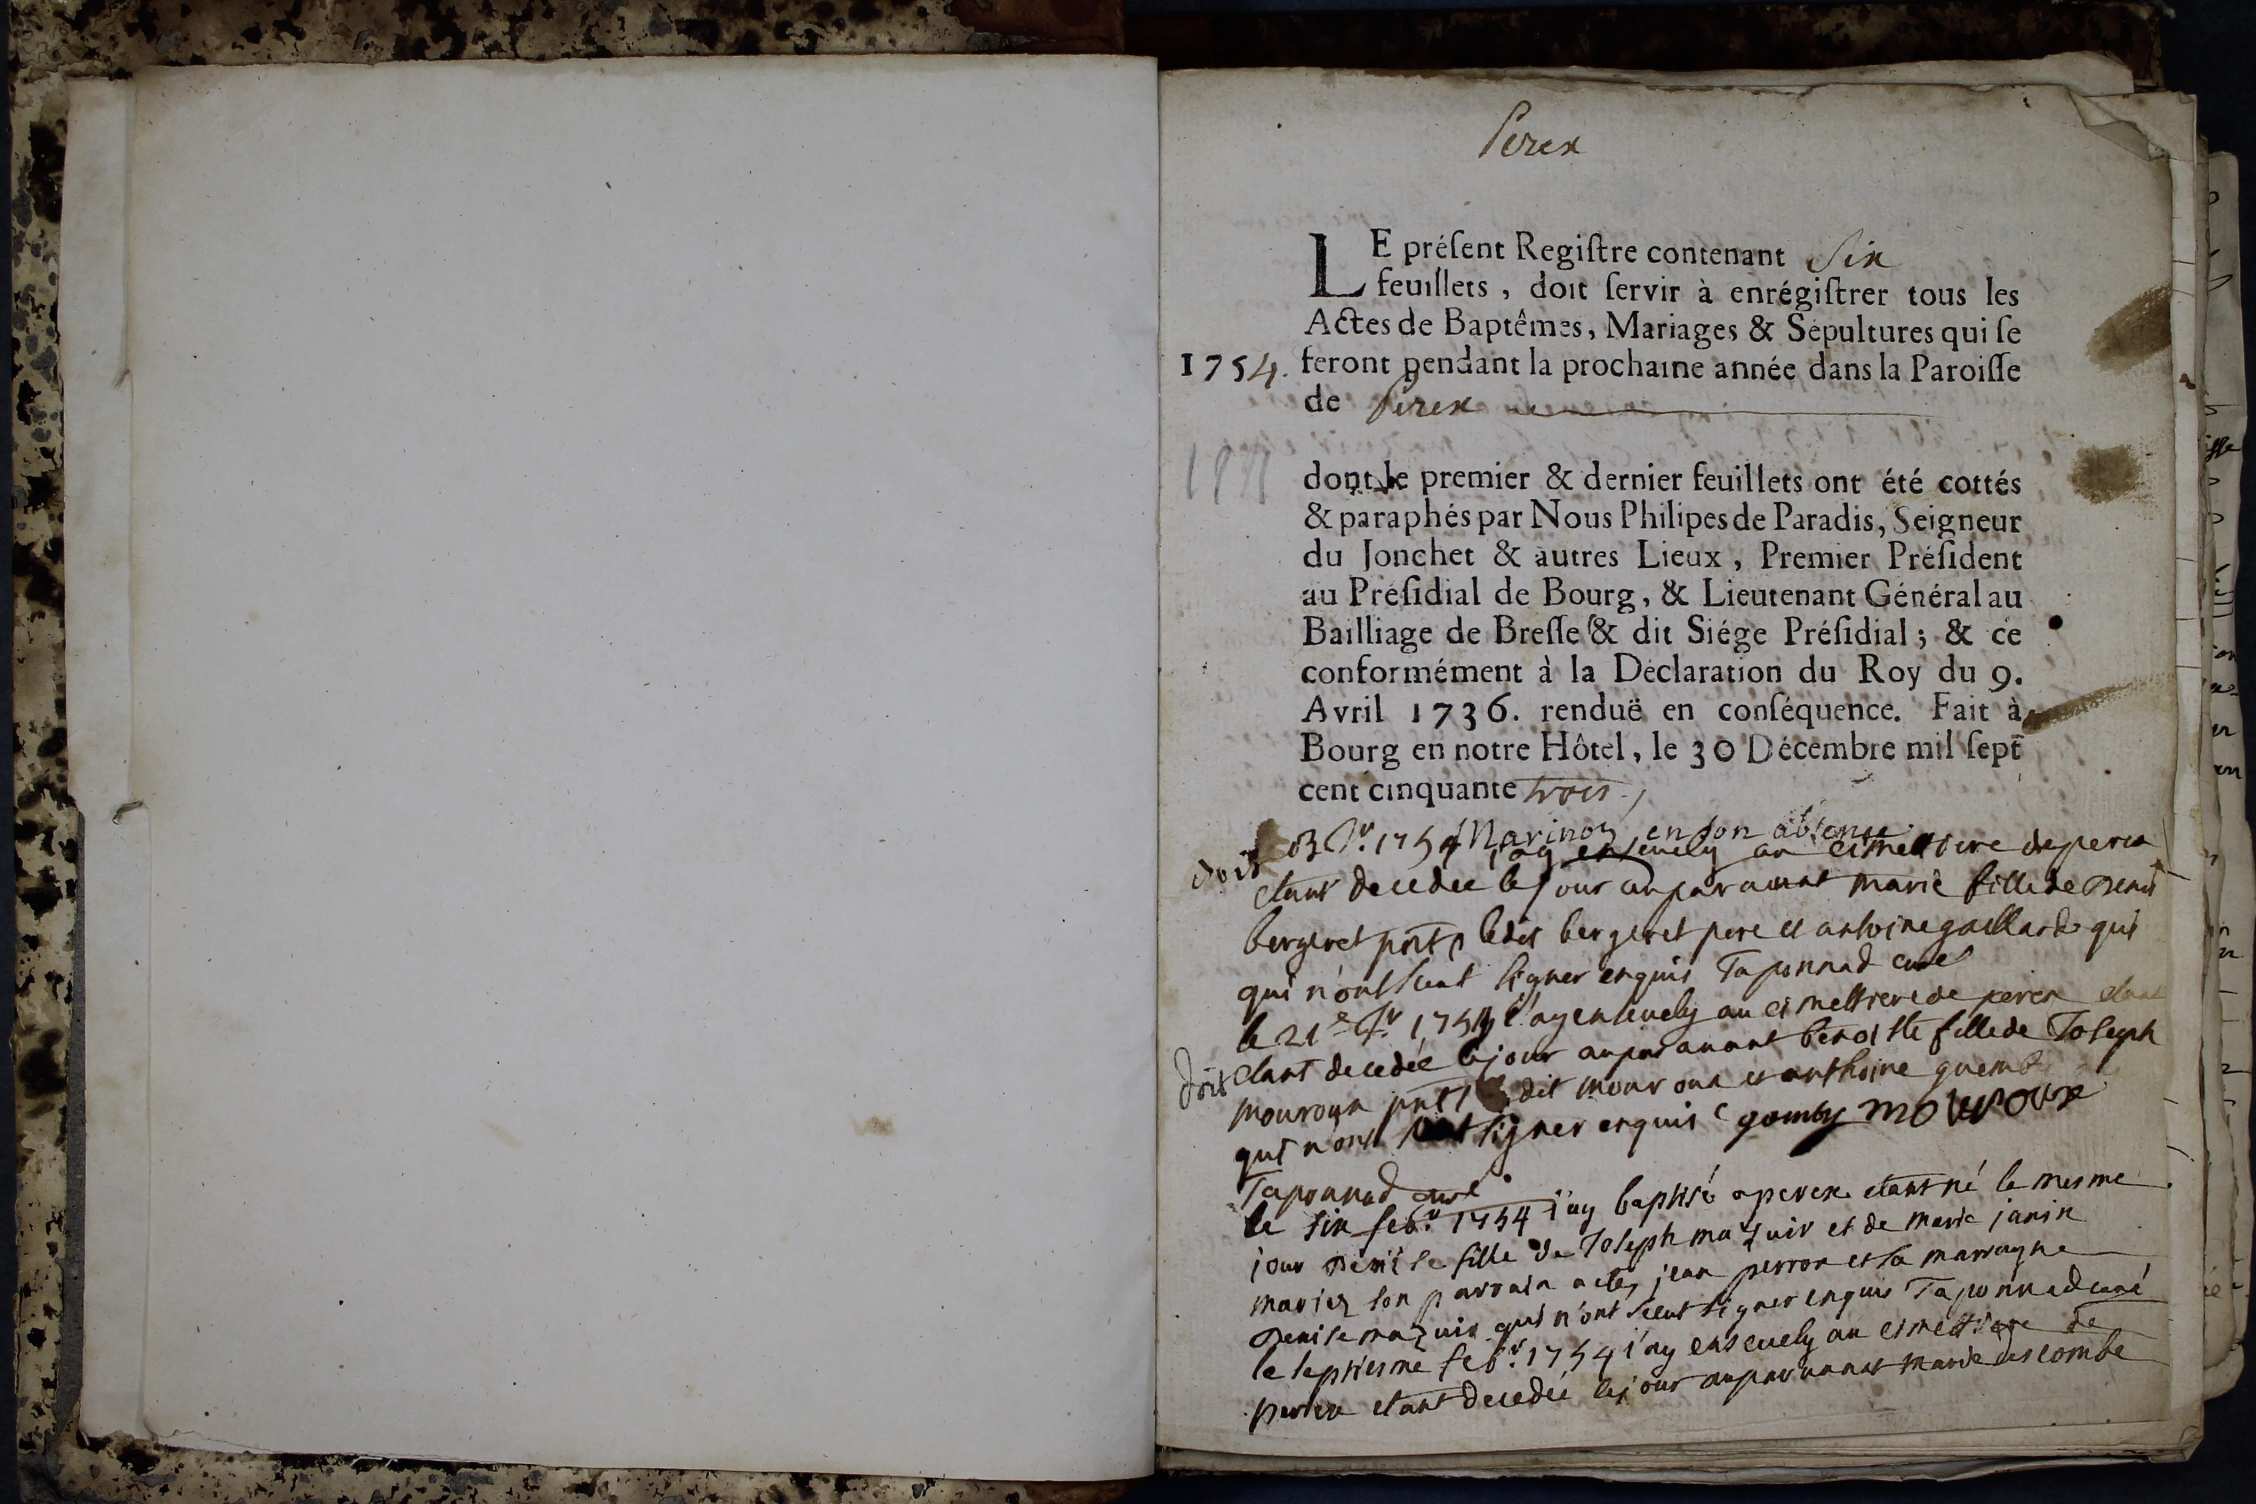 Perex
LE préſent Regiſtre contenant Six
feuillets, doit ſervir à enrégiſtrer tous les
Actes de Baptêmes, Mariages & Sépultures qui ſe
1754. feront pendant la prochaine année dans la Paroiſſe
de Perex
dont le premier & dernier feuillets ont été cottés
& paraphés par Nous Philipes de Paradis, Seigneur
du Jonchet & autres Lieux, Premier Préſident
au Préſidial de Bourg, & Lieutenant Général au
Bailliage de Breſſe & dit Siége Préſidial; & ce
conformément à la Déclaration du Roy du 9.
Avril 1736. renduë en conſéquence. Fait à
Bourg en notre Hôtel, le 30 Décembre mil ſept
cent cinquante trois
en son absence
doit 1754 j'ay ensevely au cimettiere de perex
etant decedee le jour auparavant marie fille de Denis
bergeret pnts ledit bergeret pere et antoine gaillard qui
qui n'ont sceut signer enquis Taponnad curé
le 21e 1754 j'ay ensevely au cimettiere de perex etant
doit etant decedée le jour auparavant benoiste fille de Joseph
mouroux pnts dit mouroux et anthoine
qui n'ont signer enquis gomby mouroux
Taponnad curé
le six febr. 1754 j'ay baptisé a perex etant né le mesme
jour Denise fille de Joseph mazuir et de marie janin
mariez son parrain a ete jean perron et sa marrayne
Denise mazuir qui n'ont sceut signer enquis Taponnad curé
le septiesme febr. 1754 j'ay ensevely au cimettiere de
perex etant decedée le jour auparavant marie descombe